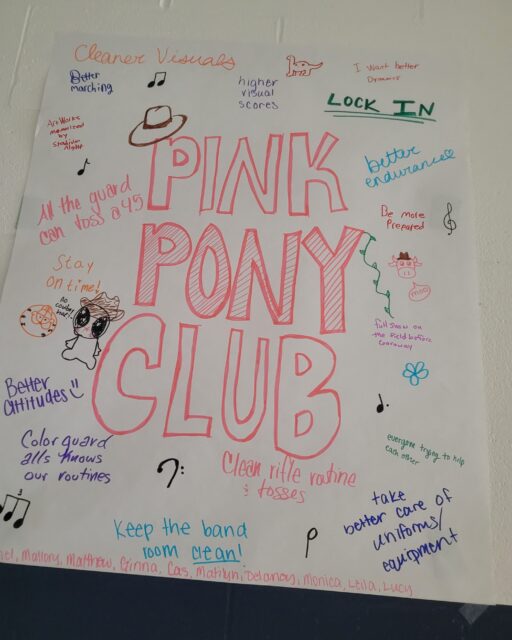 Cleaner Visuals
Better
marching
higher
visual
scores
I want better
Drummr
LOCK IN
Art Works
memorized
by
Stadium
Night
better
endurance
All the guard
can toss a 45
PINK
Be more
Prepared
Stay
on time!
PONY
moo
full show on
the field before
CLUB
Better
attitudes
Color guard
alls knows
our routines
Clean rifle routine
& tosses
everyone trying to help
each other
take
better care of
uniforms/
equipment
Keep the band
room clean!
3
Mallory, Matthew, Cas, Matilyn, Delaney, Monica, Leila, Lucy